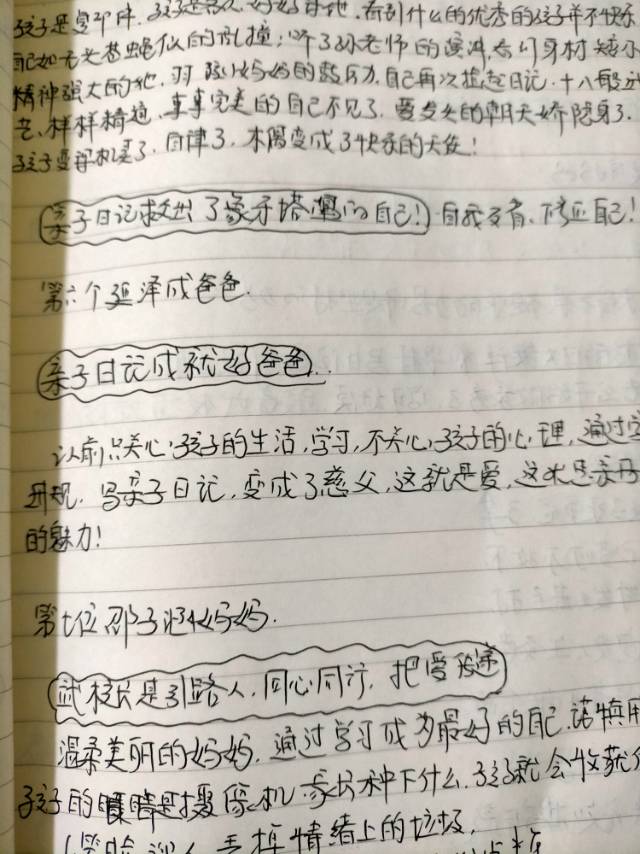 孩子是复印件.孩子是客人.好好对他.看到什么的优秀的孩子并不快乐
自己如无头苍蝇似的乱撞;听了孙老师的演讲.看们身材矮小
精神强大的他.羽 妈妈的魅力.自己再次捡起日记.十八般武
艺.样样精通.事事完美的自己不见了.要发火的朝天娇隐身了.
孩子变 了.自律了.木偶变成了快乐的天使!
亲子日记救出了象牙塔 的自己!自我反省.修正自己!
第六个延泽成爸爸.
亲子日记成就好爸爸..
认前只关心孩子的生活,学习,不关心孩子的心理,通过
写亲子日记,变成了慈父,这就是爱,这就是亲子日
的魅力!
第七位邵子 妈妈.
武校长是引路人,同心同行,把爱传递
温柔美丽的妈妈,通过学习成为最好的自己.请慎用
孩子的眼睛是摄像机.家长种下什么.孩子就会收获什
丢掉情绪上的垃圾,